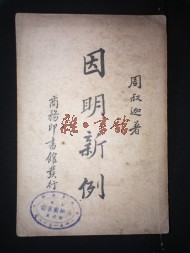 周叔迦著
因明新例
商務印書館發行